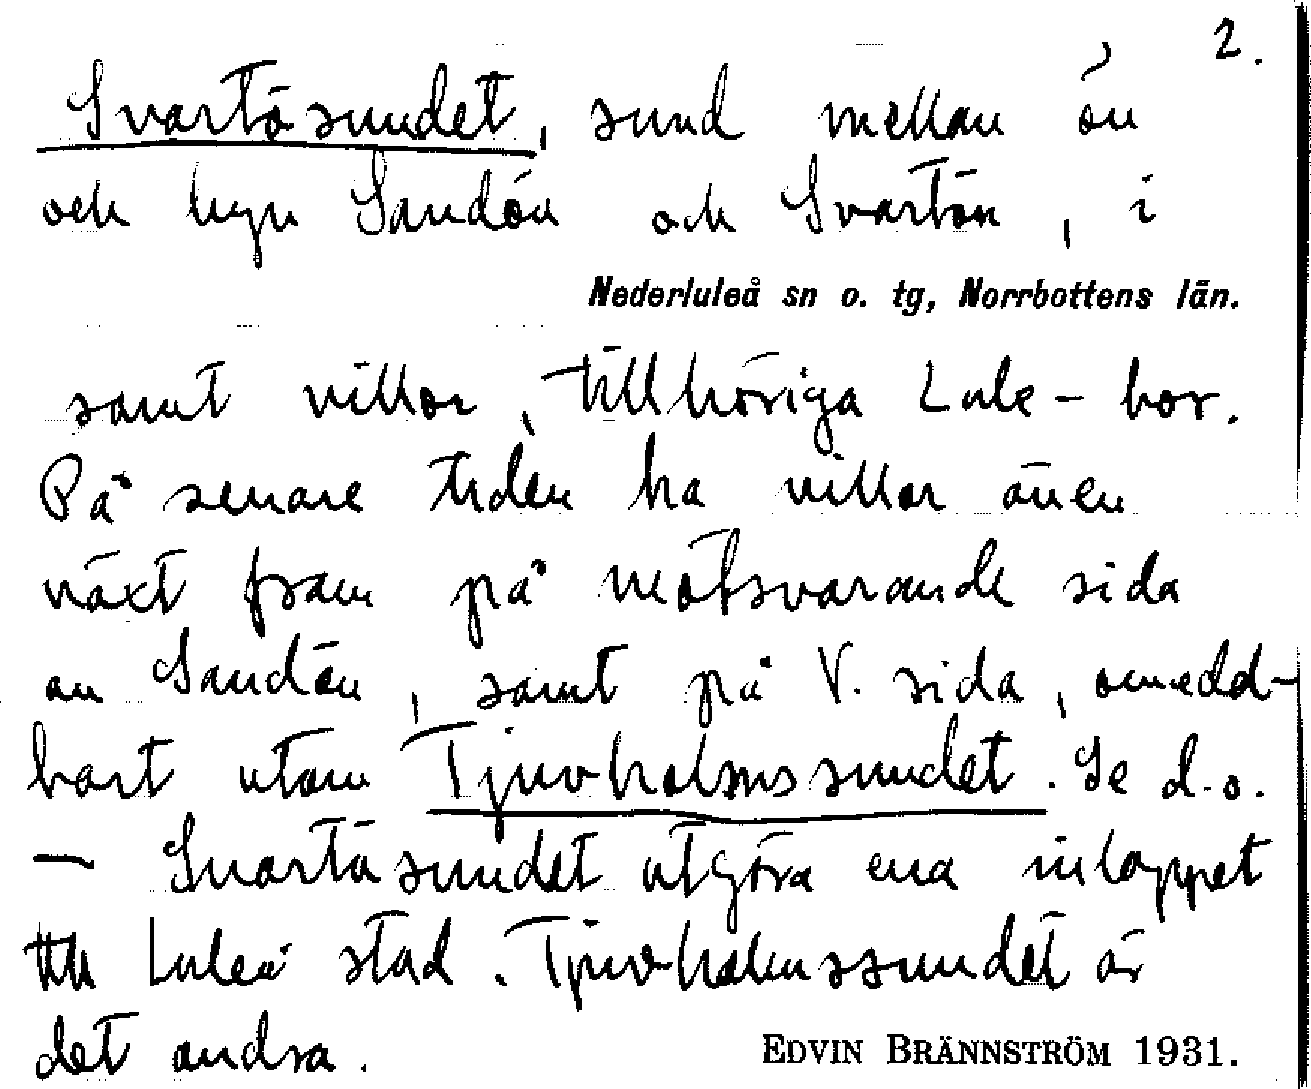 2.
Svartösundet, sund mellan ön
och byn Sandön och Svartön, i
Nederluleå sn o. tg, Norrbottens län.
samt villor, tillhöriga Lule-bor.
På senare tiden ha villor även
växt fram på motsvarande sida
av Sandön, samt på V. sida, omedel-
bart utom Tjuvholmssundet. Se d.o.
— Svartösundet utgöra ena inloppet
till Luleå stad. Tjuvholmssundet är
det andra.
EDVIN BRÄNNSTRÖM 1931.